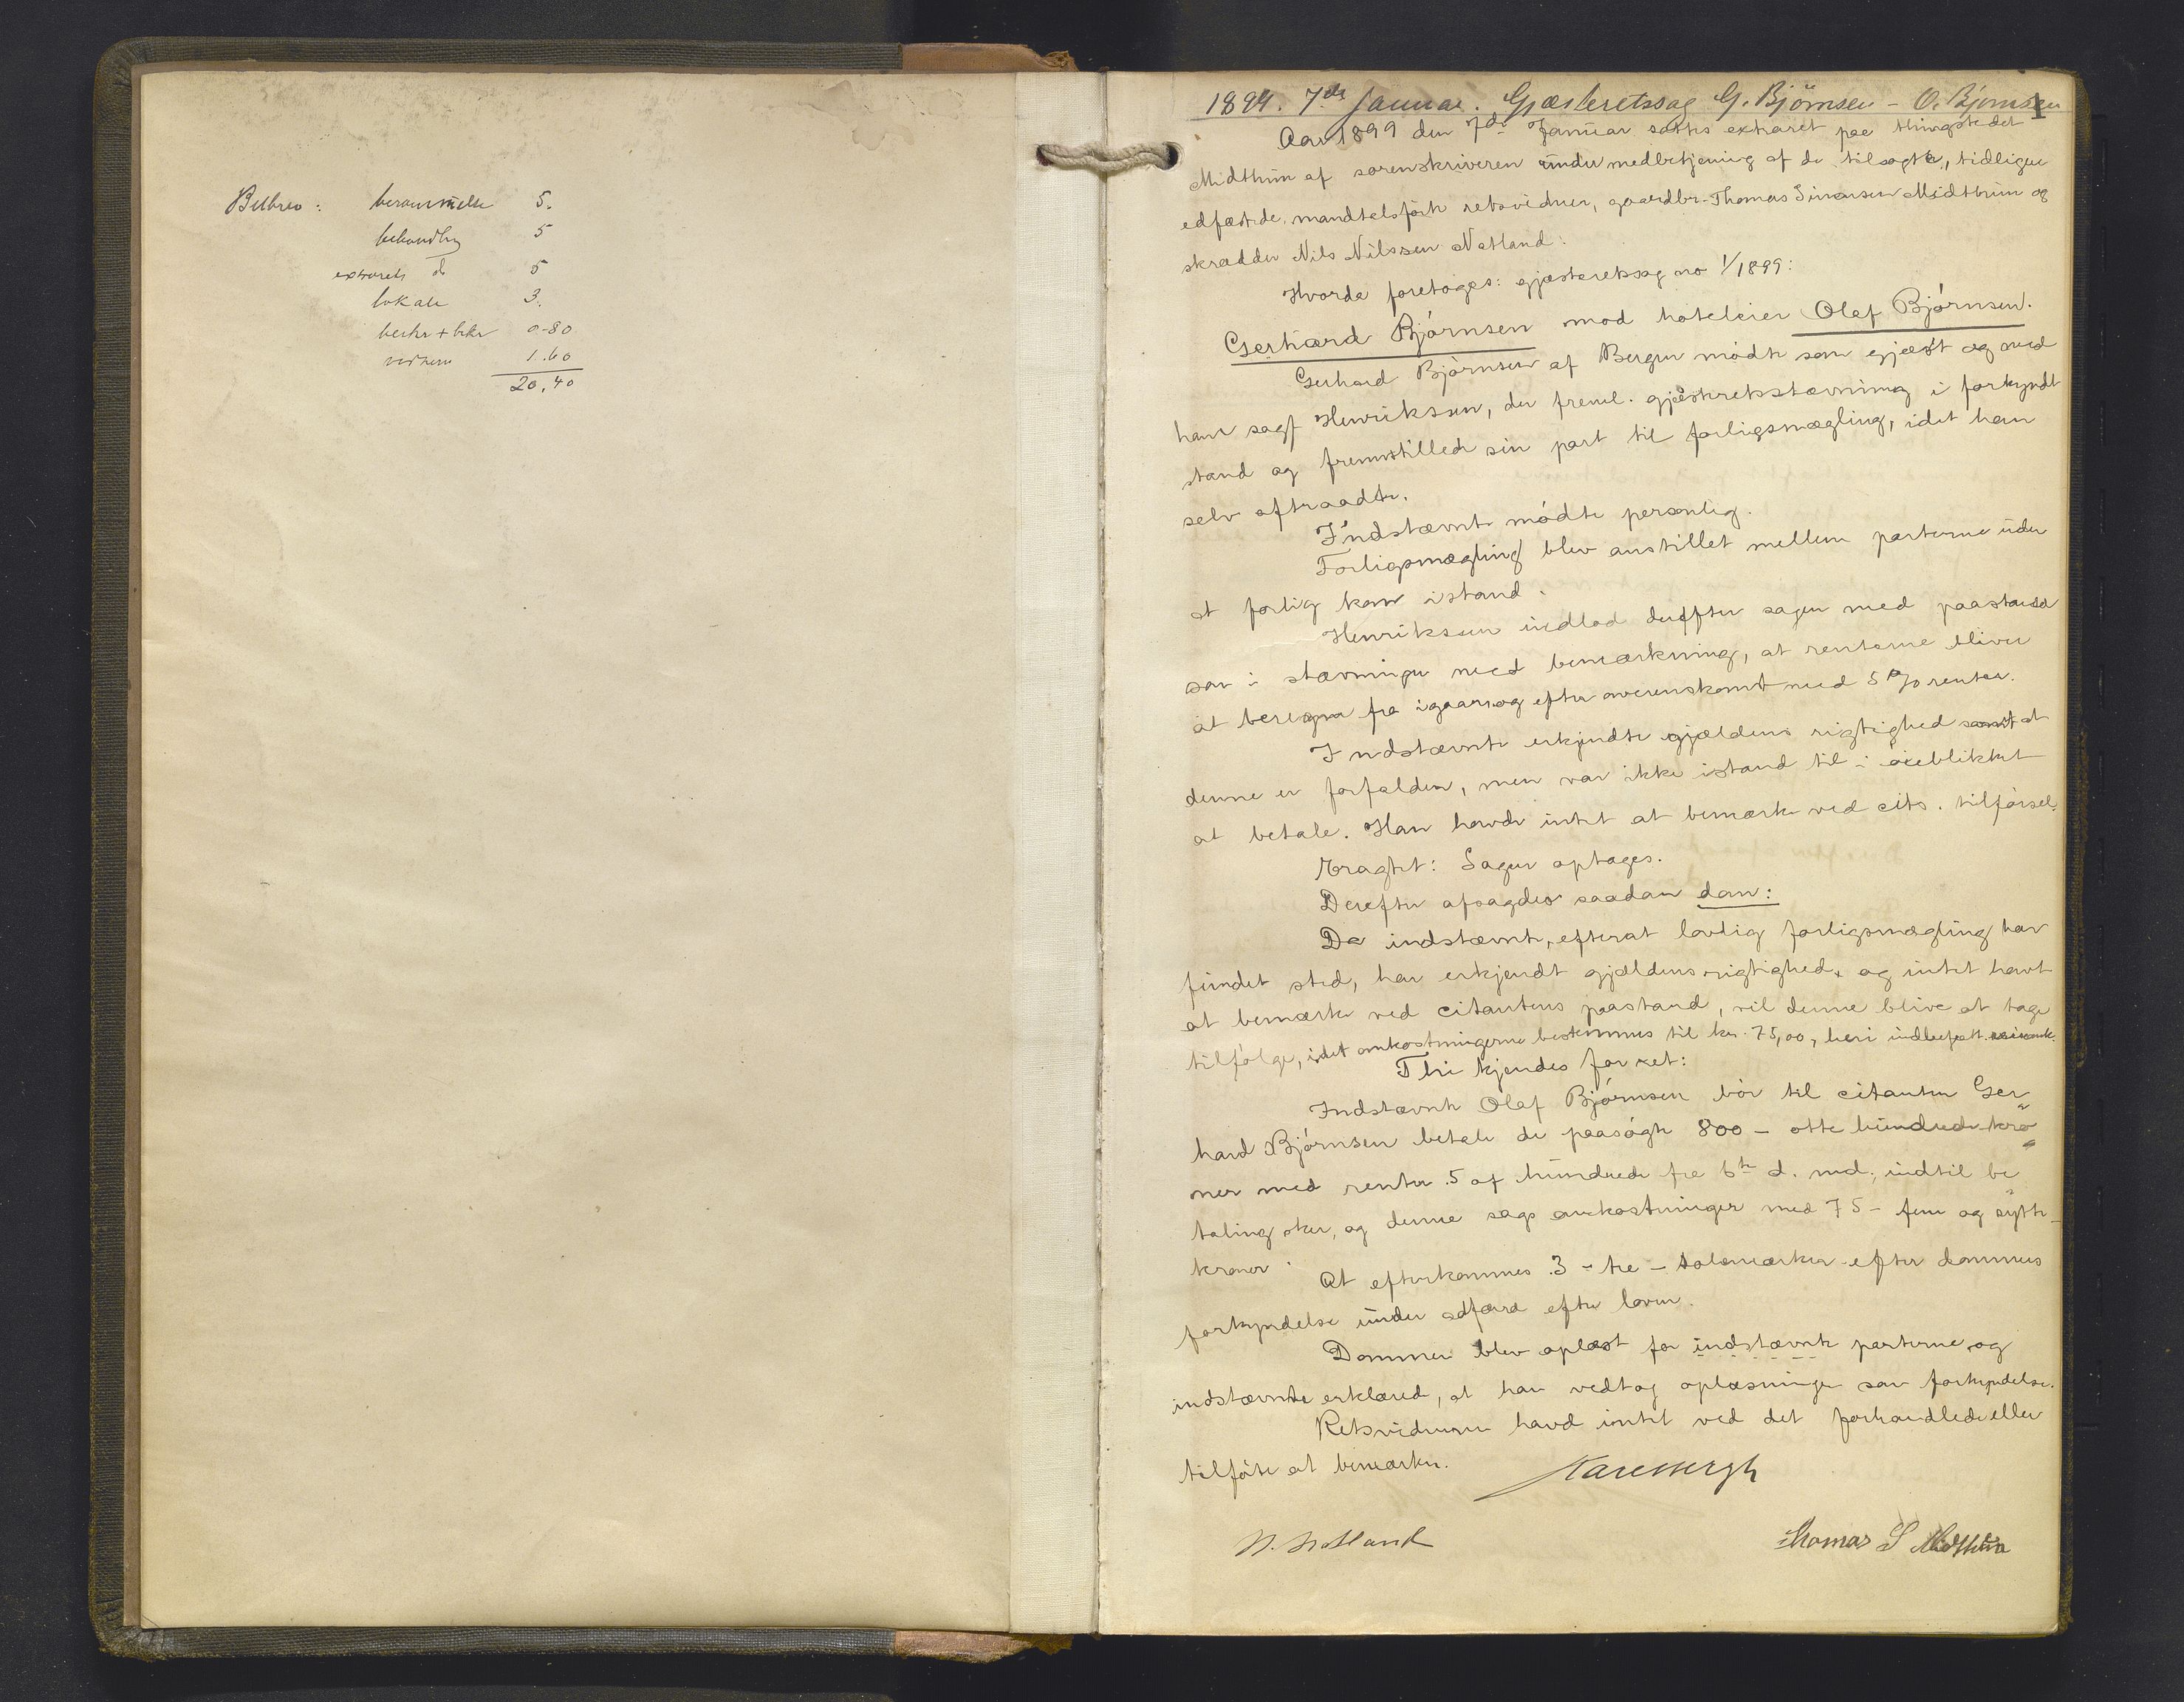 Beløb: berammelse 5.
behandlg 5
extrarets d 5
lokale 3.
0-80
vidner 1.60
20,40
1899. 7de Januar. Gjæsteretssag G. Björnsen - O. Bjornsen 1
Aar 1899 den 7de Januar sattes extraret paa thingstedet
Midthun af sorenskriveren under medbetjening af de tilsagte, tidligere
edfæstede, mandtalsførte retsvidner, gaardbr. Thomas Simonsen Midthun og
skrædder Nils Nilssen Natland:
Hvorda foretoges: gjæsteretssag no 1/1899:
Gerhard Bjørnsen mod hoteleier Olaf Bjørnsen.
Gerhard Bjørnsen af Bergen mødte som gjæst og med
ham sagf Henriksen, der freml. gjæsteretsstævning i forkyndt
stand og fremstillede sin part til forligsmægling, idet han
selv aftraadte.
Indstævnte mødte personlig.
Forligsmægling blev anstillet mellem parterne uden
at forlig kom istand.
Henriksen indlod derefter sagen med paastand
som i stævningen med bemærkning, at renterne bliver
at beregne fra igaar og efter overenskomst med 5 % renter.
Indstævnte erkjendte gjældens rigtighed samt at
denne er forfalden, men var ikke istand til i øieblikket
at betale. Han havde intet at bemærke ved cits. tilførsel.
Eragtet: Sagen optages.
Derefter afsagdes saadan dom:
Da indstævnte, efterat lovlig forligsmægling har
fundet sted, har erkjendt gjældens rigtighed, og intet havt
at bemærke ved citantens paastand, vil denne blive at tage
tilfølge, idet omkostningerne bestemmes til kr. 75,00, heri indbefatt.
Thi kjendes for ret:
Indstævnte Olaf Bjørnsen bør til citanten Ger-
hard Bjørnsen betale de paasøgte 800 - otte hundrede kro-
ner med renter 5 af hundrede fra 6te d. md. indtil be-
taling sker, og denne sags omkostninger med 75 - fem og sytti -
kroner.
At efterkommes 3 - tre - solemærker efter dommens
forkyndelse under adfærd efter loven.
Dommen blev oplæst for indstævnte parterne og
indstævnte erklærede, at han vedtog oplæsningen som forkyndelse.
Retsvidnerne havd intet ved det forhandlede eller
tilførte at bemærke.
N. Natland
Thomas S Midthun